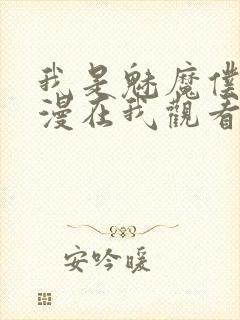 我是魅魔僕
漫在我觀看
安吟暖